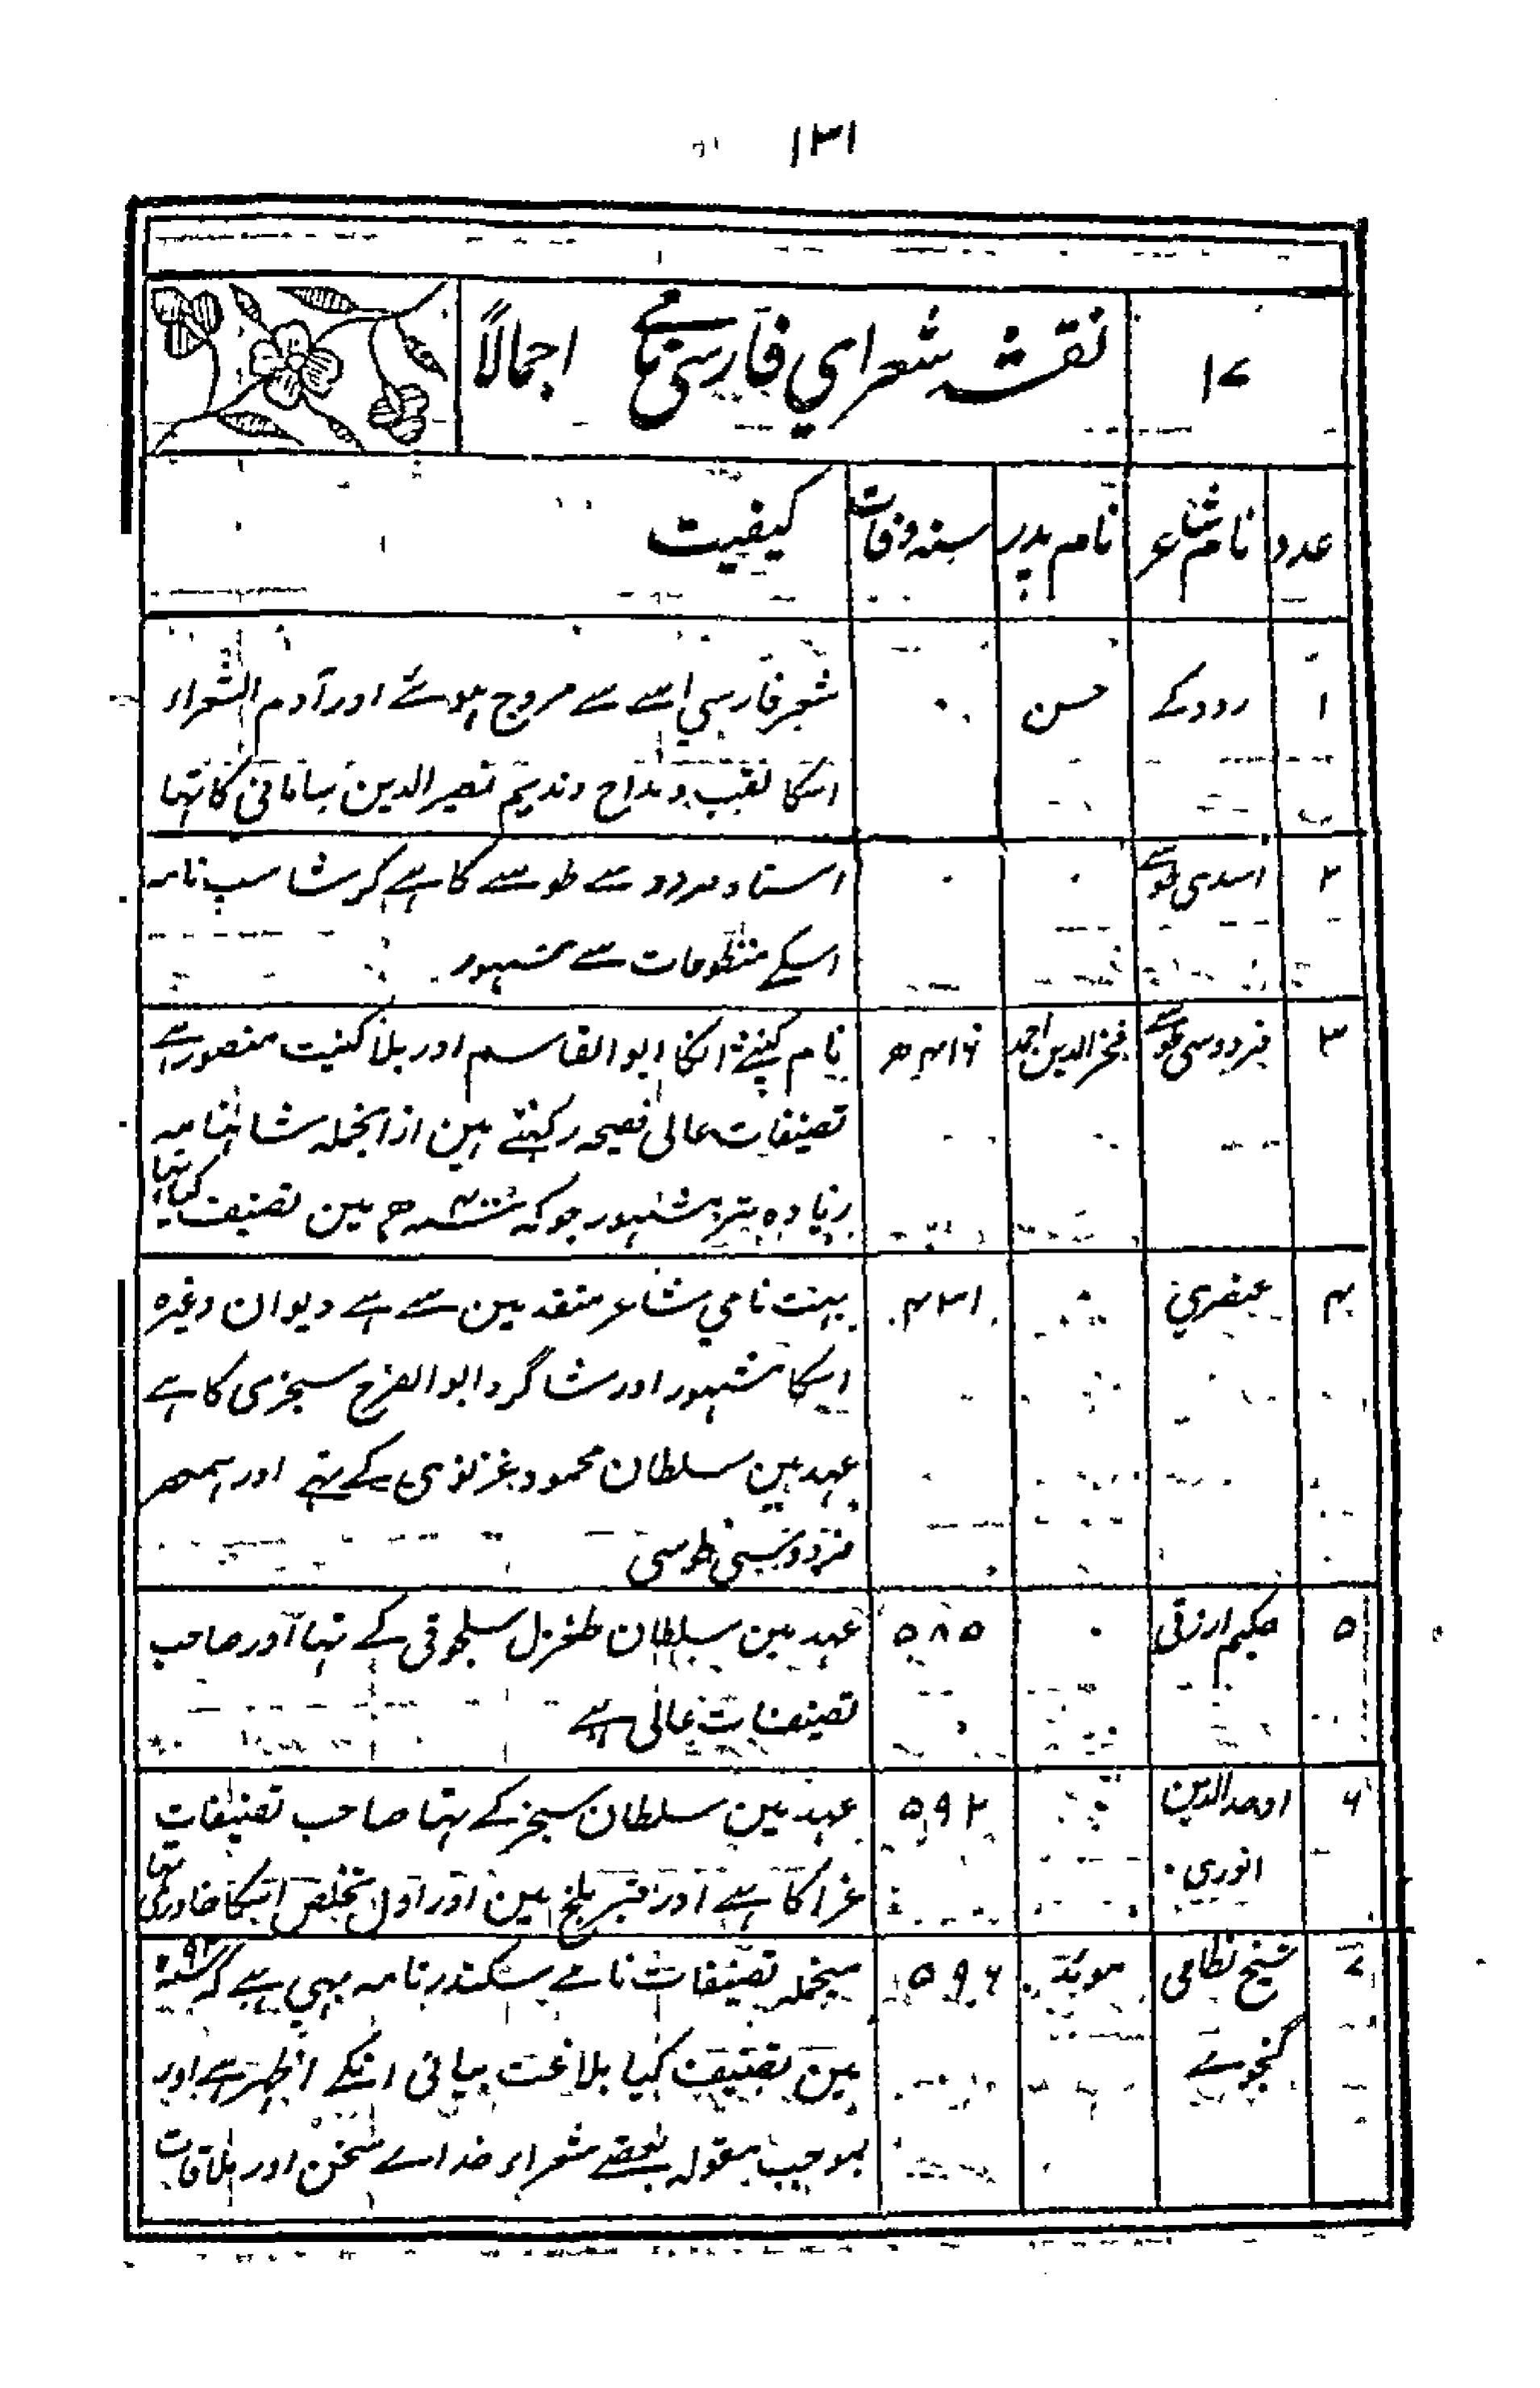 ۱۳۱
۱۷ نقشہ شعرای فارسی نامے اجمالاً
عدد نام شاعر نام پدر سنہ وفات کیفیت
۱ رودکے حسن ۰ شعر فارسی اسے سے مروج ہوئے اور آدم الشعراء
اسکا لقب و مداح و ندیم نصیر الدین سامانی کا تہا
۲ اسدی طوسے ۰ ۰ استاد فردوسے طوسے کا ہے گرشاسب نامہ
اسکے منظومات سے مشہور
۳ فردوسی طوسے فخر الدین احمد ۴۱۶ھ نام کنیتہ انکا ابوالقاسم اور بلا کنیت منصور ہے
تصنیفات عالی فصیحہ رکہتے ہین ازانجملہ شاہنامہ
زیادہ تر مشہور جوکہ سنہ ۴۰۰ ھ مین تصنیف کیا تہا
۴ عنصری ۰ ۴۳۱ بہت نامی شاعر متقدمین سے ہے دیوان وغیرہ
اسکا مشہور اور شاگرد ابو الفرج سجزی کا ہے
عہد مین سلطان محمود غزنوی کے تہے اور ہمعصر
فردوسی طوسی
۵ حکیم ارزقی ۰ ۵۸۵ عہد مین سلطان طغرل سلجوقی کے تہا اور صاحب
تصنیفات عالی ہے
۶ اوحد الدین ۰ ۵۹۲ عہد مین سلطان سنجر کے تہا صاحب تصنیفات
انوری غرا کا ہے اور قبر بلخ مین اور اول تخلص اسکا خاوری تہا
۷ شیخ نظامی موید ۵۹۶ منجملہ تصنیفات نامے سکندر نامہ بہی ہے کہ سنہ
گنجوے مین تصنیف کیا بلاغت بیانی انکے اظہر ہے اور
بموجب مقولہ بعضے شعراء خداے سخن اور ملاقات